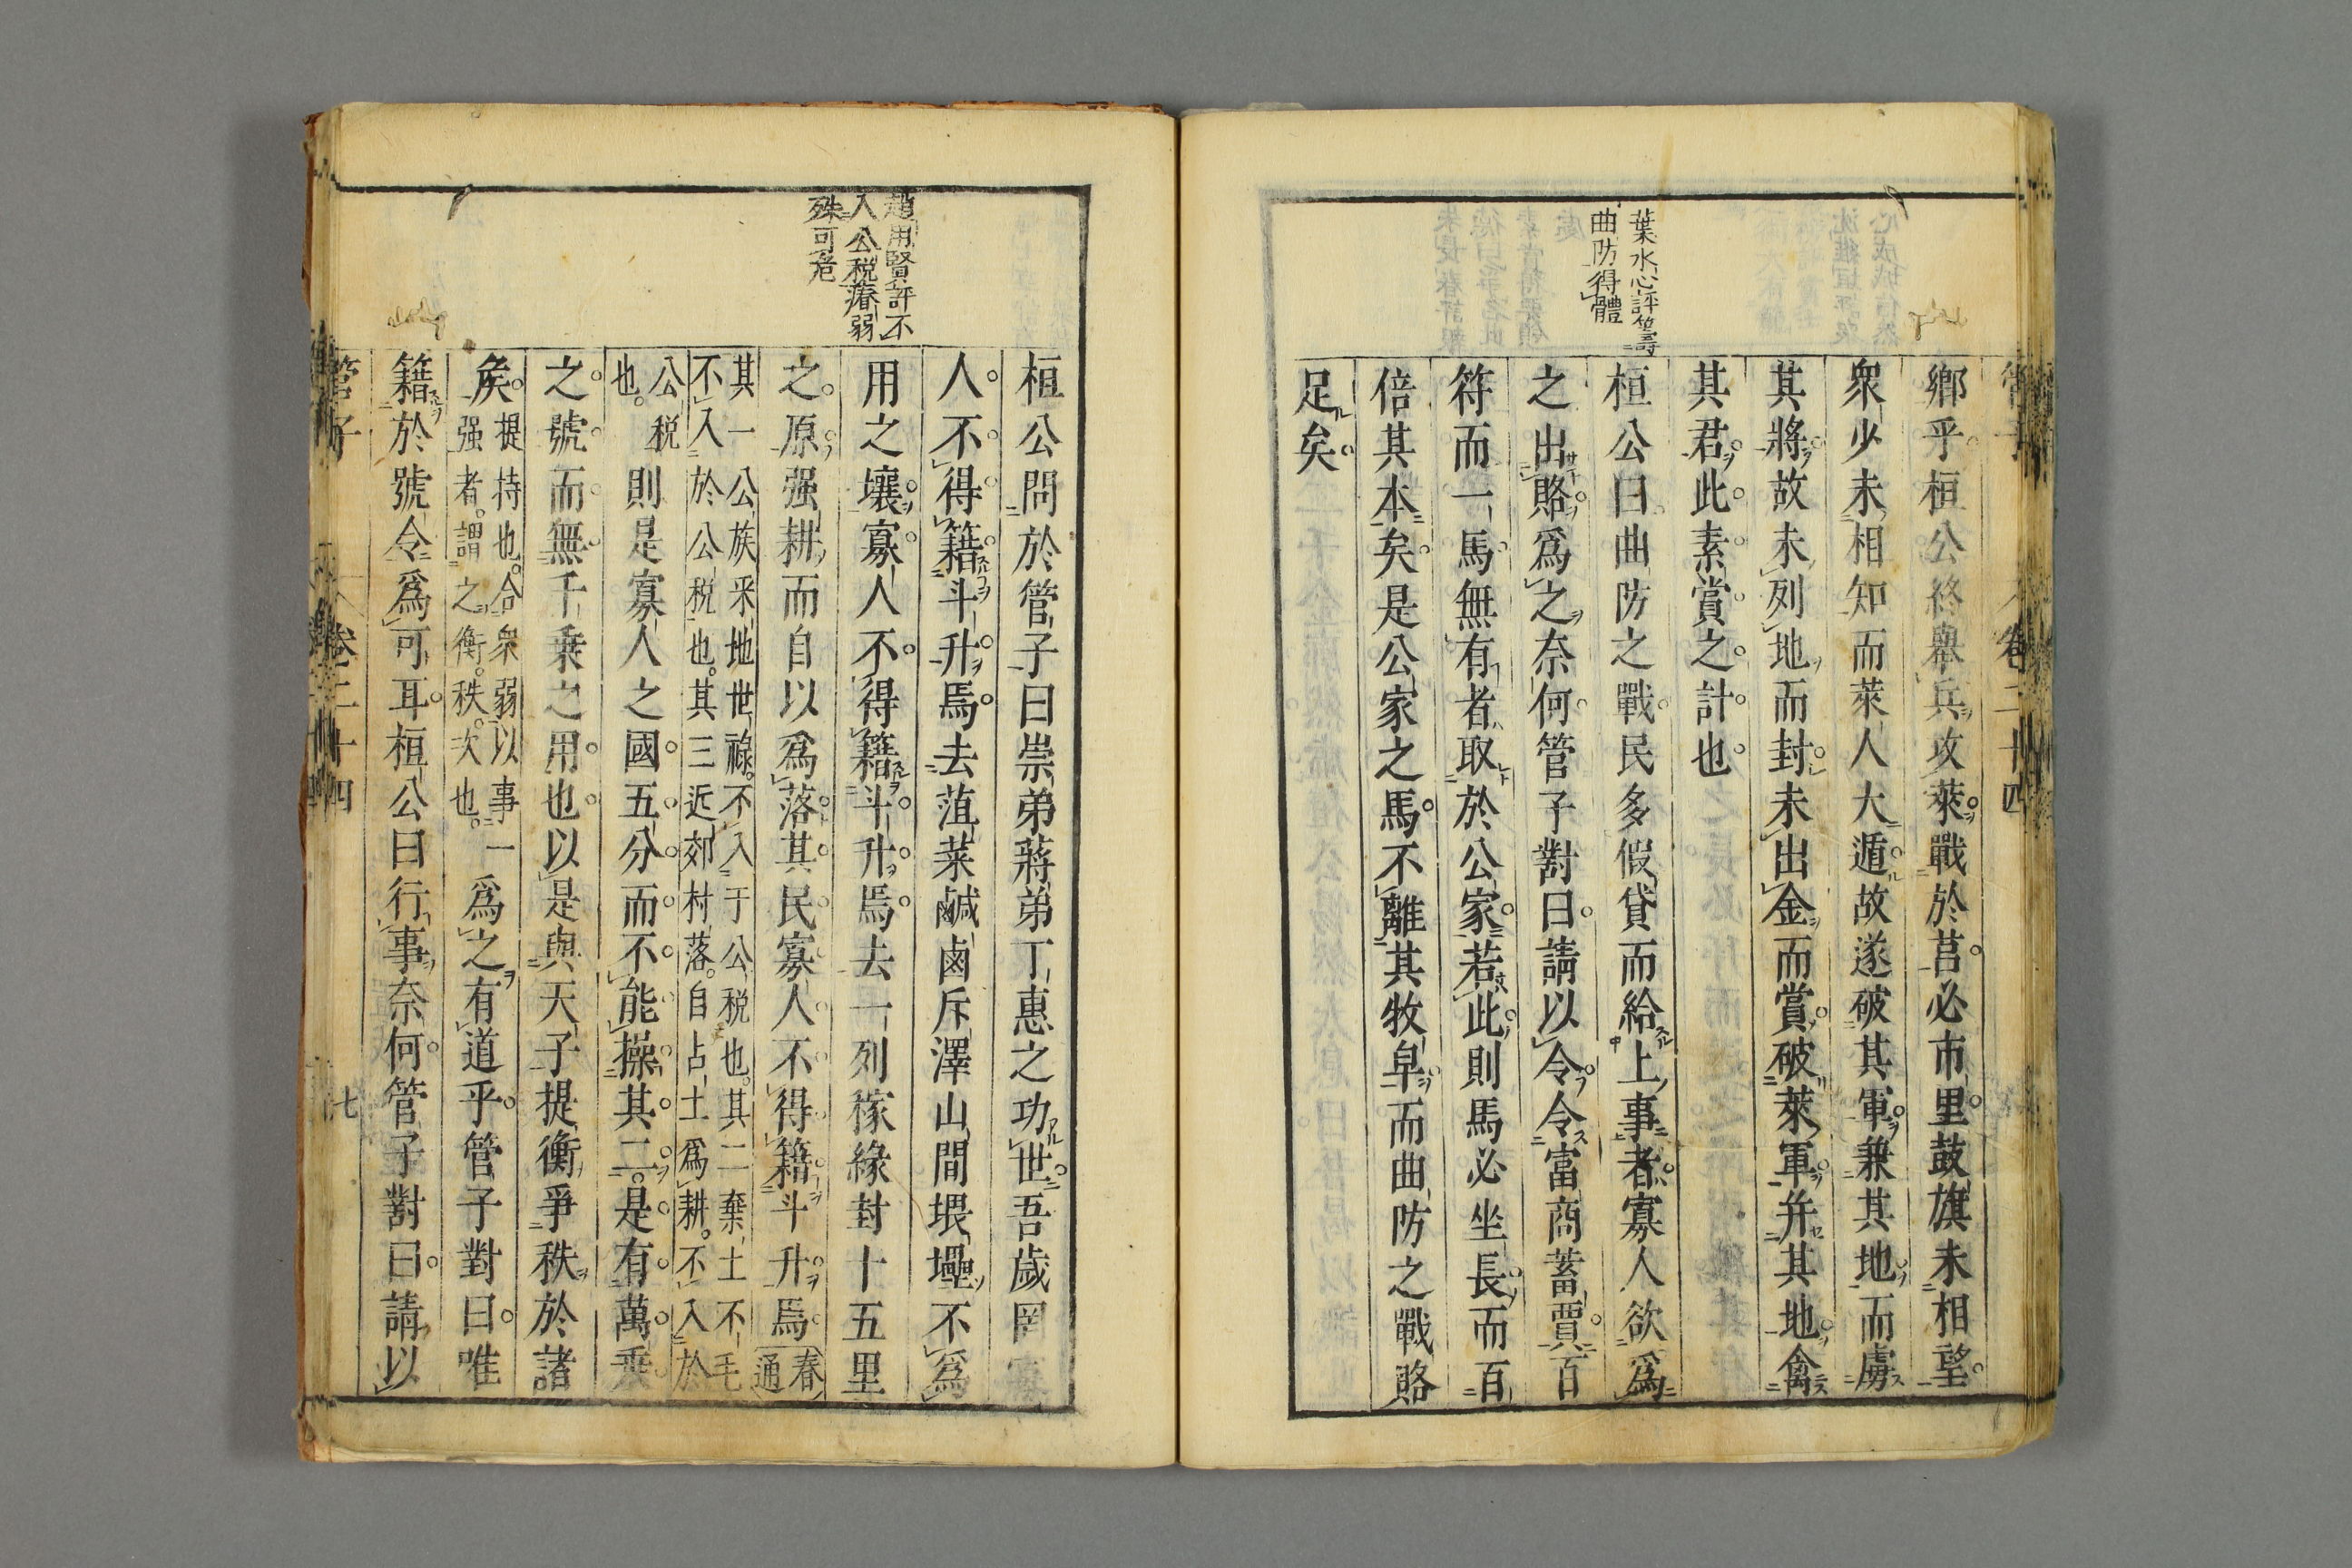 葉水心評籌
曲防得體
鄉乎桓公終舉兵攻萊戰於莒必市里鼓旗未相望
衆少未相知而萊人大遁故遂破其軍兼其地而虜
其將故未列地而封未出金而賞破萊軍并其地禽
其君此素賞之計也
桓公曰曲防之戰民多假貸而給上事者寡人欲爲
之出賂爲之奈何管子對曰請以令令富商蓄賈百
符而一馬無有者取於公家若此則馬必坐長而百
倍其本矣是公家之馬不離其牧皁而曲防之戰賂
足矣
趙用賢評不
入公税瘠弱
殊可危
桓公問於管子曰崇弟蔣弟丁惠之功世吾歲罔
人不得籍斗升焉去菹菜鹹鹵斥澤山間堁壘不爲
用之壤寡人不得籍斗升焉去一列稼緣封十五里
之原强耕而自以爲落其民寡人不得籍斗升焉春通
其一公族釆地世祿不入于公税也其二棄土不毛
不入於公税也其三近郊村落自占土爲耕不入於
公税
也則是寡人之國五分而不能操其二是有萬乘
之號而無千乘之用也以是與天子提衡爭秩於諸
矣提持也合衆弱以事一
强者謂之衡秩次也爲之有道乎管子對曰唯
籍於號令爲可耳桓公曰行事奈何管子對曰請以
管子
卷二十四
七